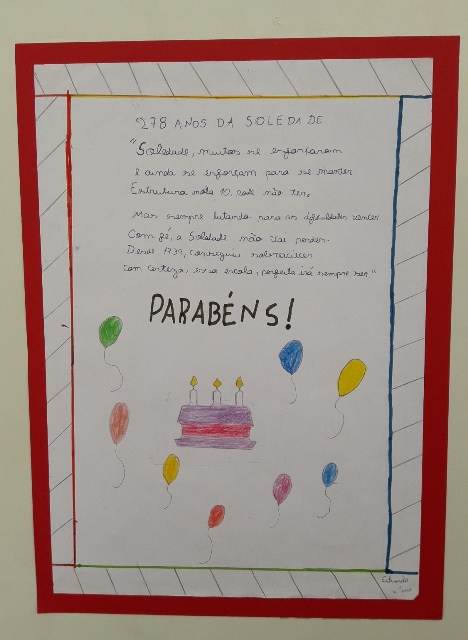 278 ANOS DA SOLEDADE
"Soledade, muitos se esforçaram
E ainda se esforçam para se manter
Estrutura nota 10, pode não ter,
Mas sempre lutando para as dificuldades vencer
Com fé, a Soledade não vai perder.
Desde 1739, conseguiu sobreviver
Com certeza, essa escola, perfeita irá sempre ser."
PARABÉNS!
Eduardo